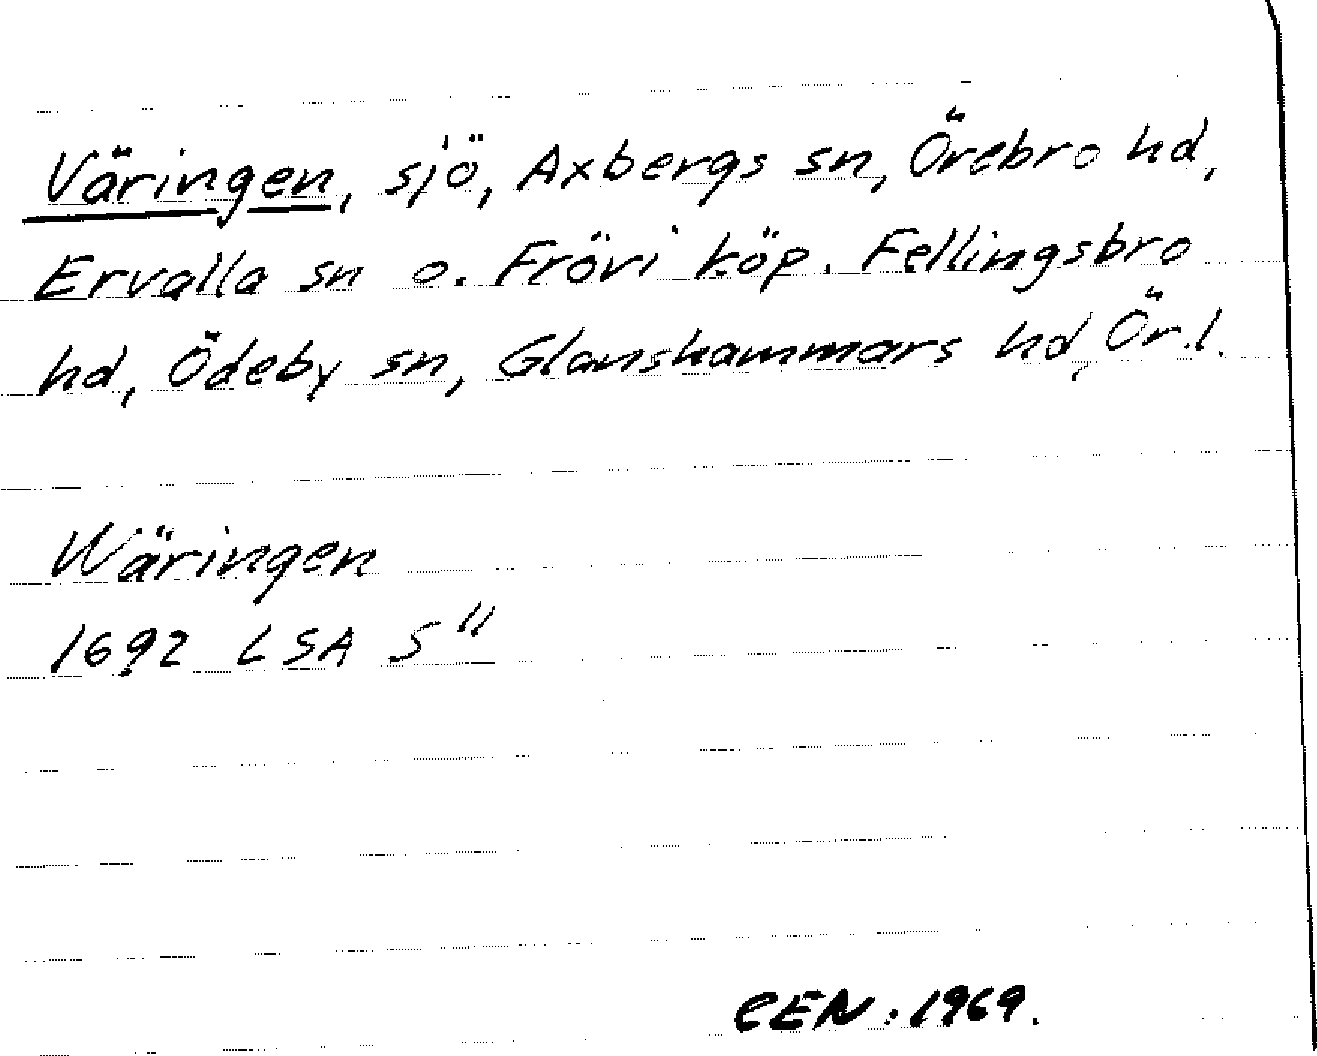 Väringen, sjö, Axbergs sn, Örebro hd,
Ervalla sn o. Frövi köp. Fellingsbro
hd, Ödeby sn, Glanshammars hd, Ör.l.
Wäringen
1692 LSA S"
CEN. 1969.